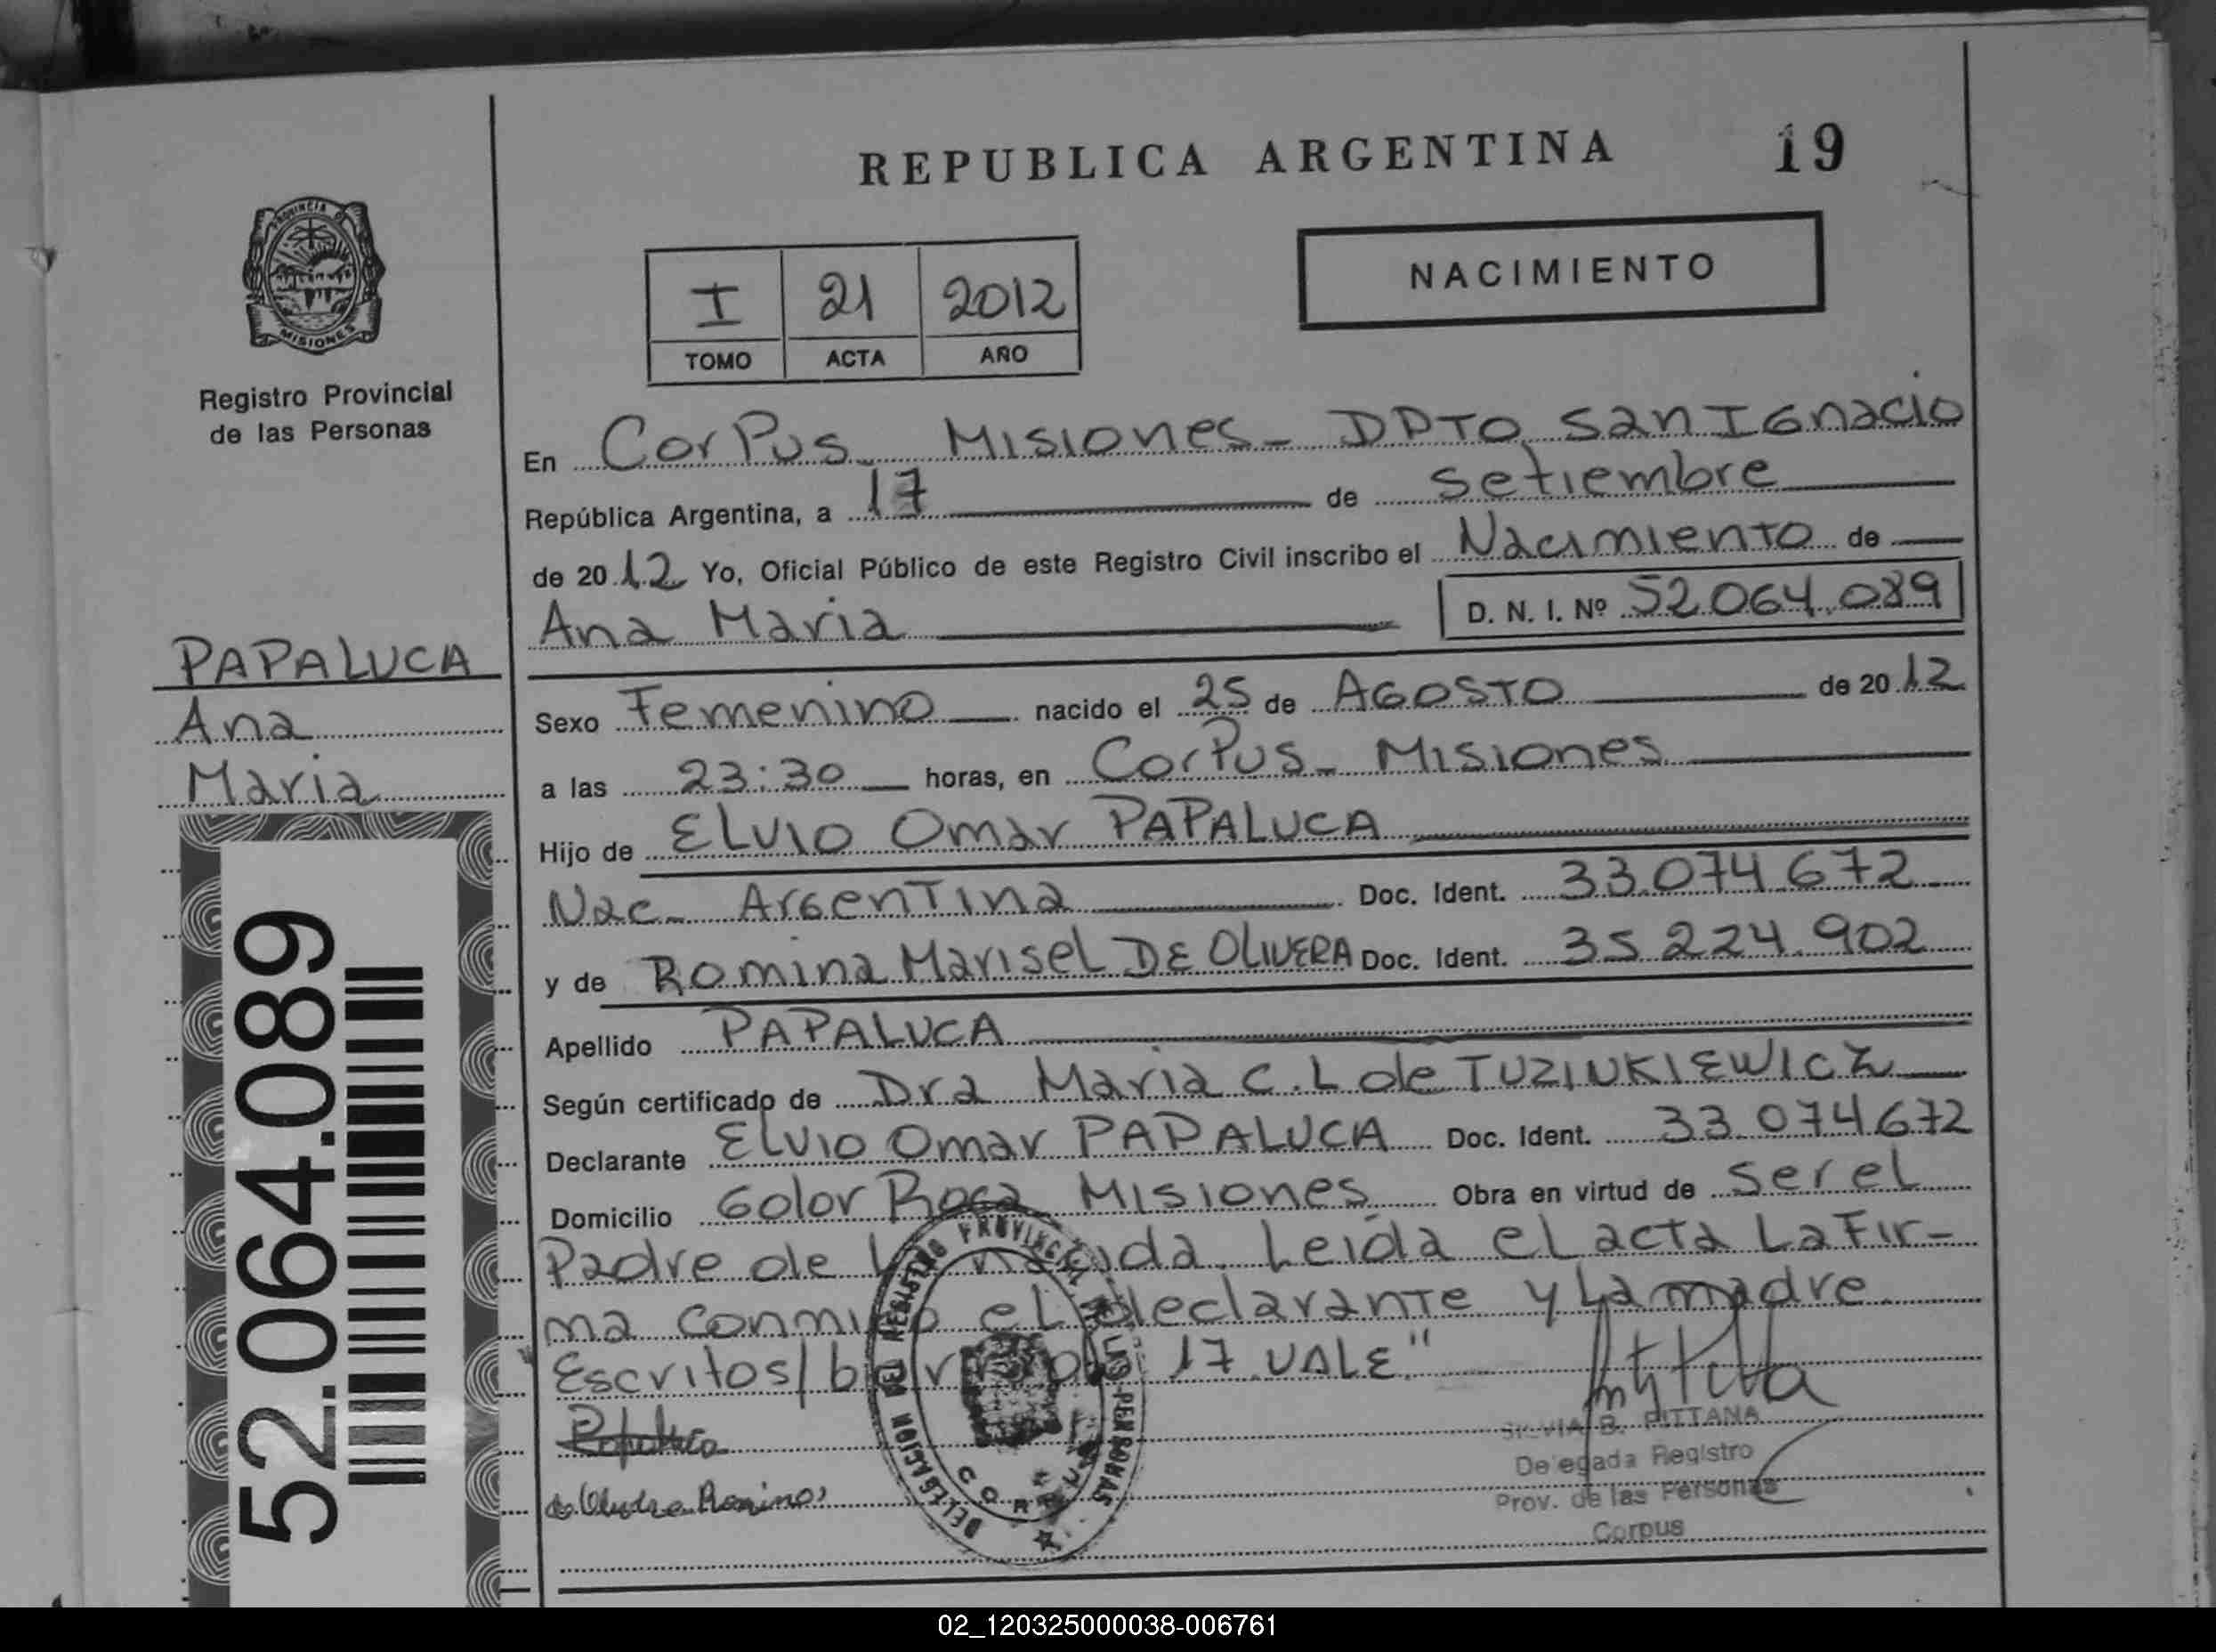 REPUBLICA ARGENTINA 19
PROVINCIA D
MISIONES
Registro Provincial
de las Personas
I 21 2012
TOMO ACTA AÑO
NACIMIENTO
En Corpus - Misiones - DPTO San Ignacio
República Argentina, a 17 de setiembre
de 2012 Yo, Oficial Público de este Registro Civil inscribo el Nacimiento de
Ana Maria D. N. I. Nº 52.064.089
PAPALUCA
Ana
Maria
Sexo Femenino nacido el 25 de AGOSTO de 2012
a las 23:30 horas, en Corpus - Misiones
Hijo de ELVIO Omar PAPALUCA
Nac- Argentina Doc. Ident. 33.074.672
y de Romina Marisel DE OLIVERA Doc. Ident. 35.224.902
Apellido PAPALUCA
Según certificado de Dra Maria C. L de TUZINKIEWICZ
Declarante ELVIO Omar PAPALUCA Doc. Ident. 33.074672
Domicilio Golor Roca Misiones Obra en virtud de ser el
Padre de La nacida. Leida el acta La Fir-
ma conmigo el declarante y La madre
Escritos/ 17 VALE"
52.064.089
Papaluca
de Romina
SILVIA B. PITTANA
Delegada Registro
Prov. de las Personas
Corpus
DELEGACION DEL REGISTRO PROVINCIAL DE LAS PERSONAS
CORPUS
02_120325000038-006761